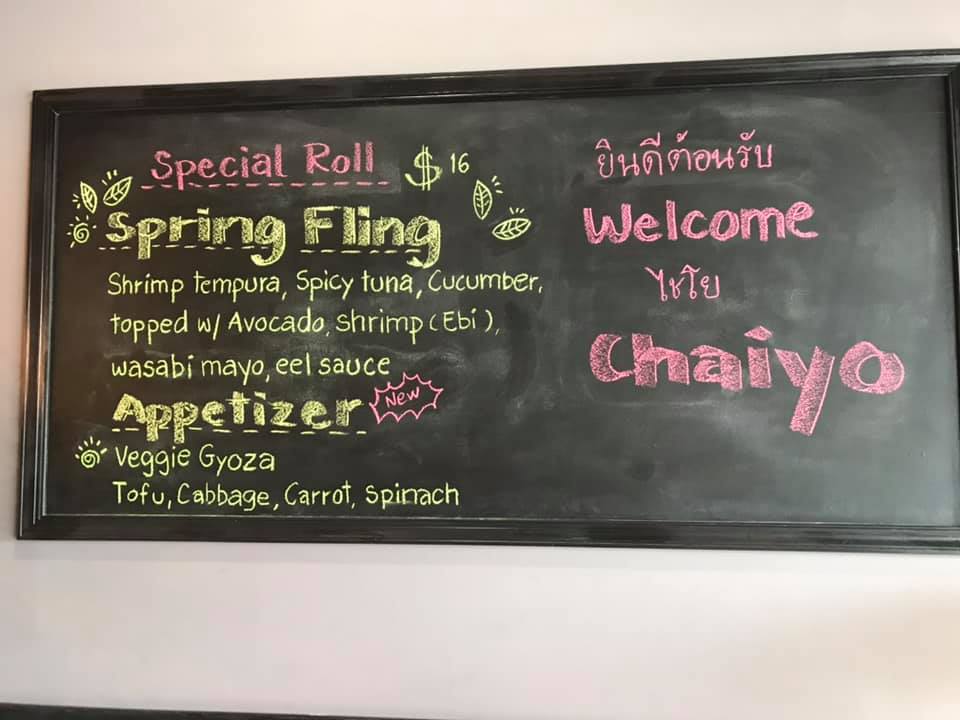 Special Roll $16
Spring Fling
Shrimp tempura, Spicy tuna, Cucumber,
topped w/ Avocado, Shrimp (Ebi),
wasabi mayo, eel sauce
Appetizer New
Veggie Gyoza
Tofu, Cabbage, Carrot, Spinach
ยินดีต้อนรับ
Welcome
ไชโย
Chaiyo